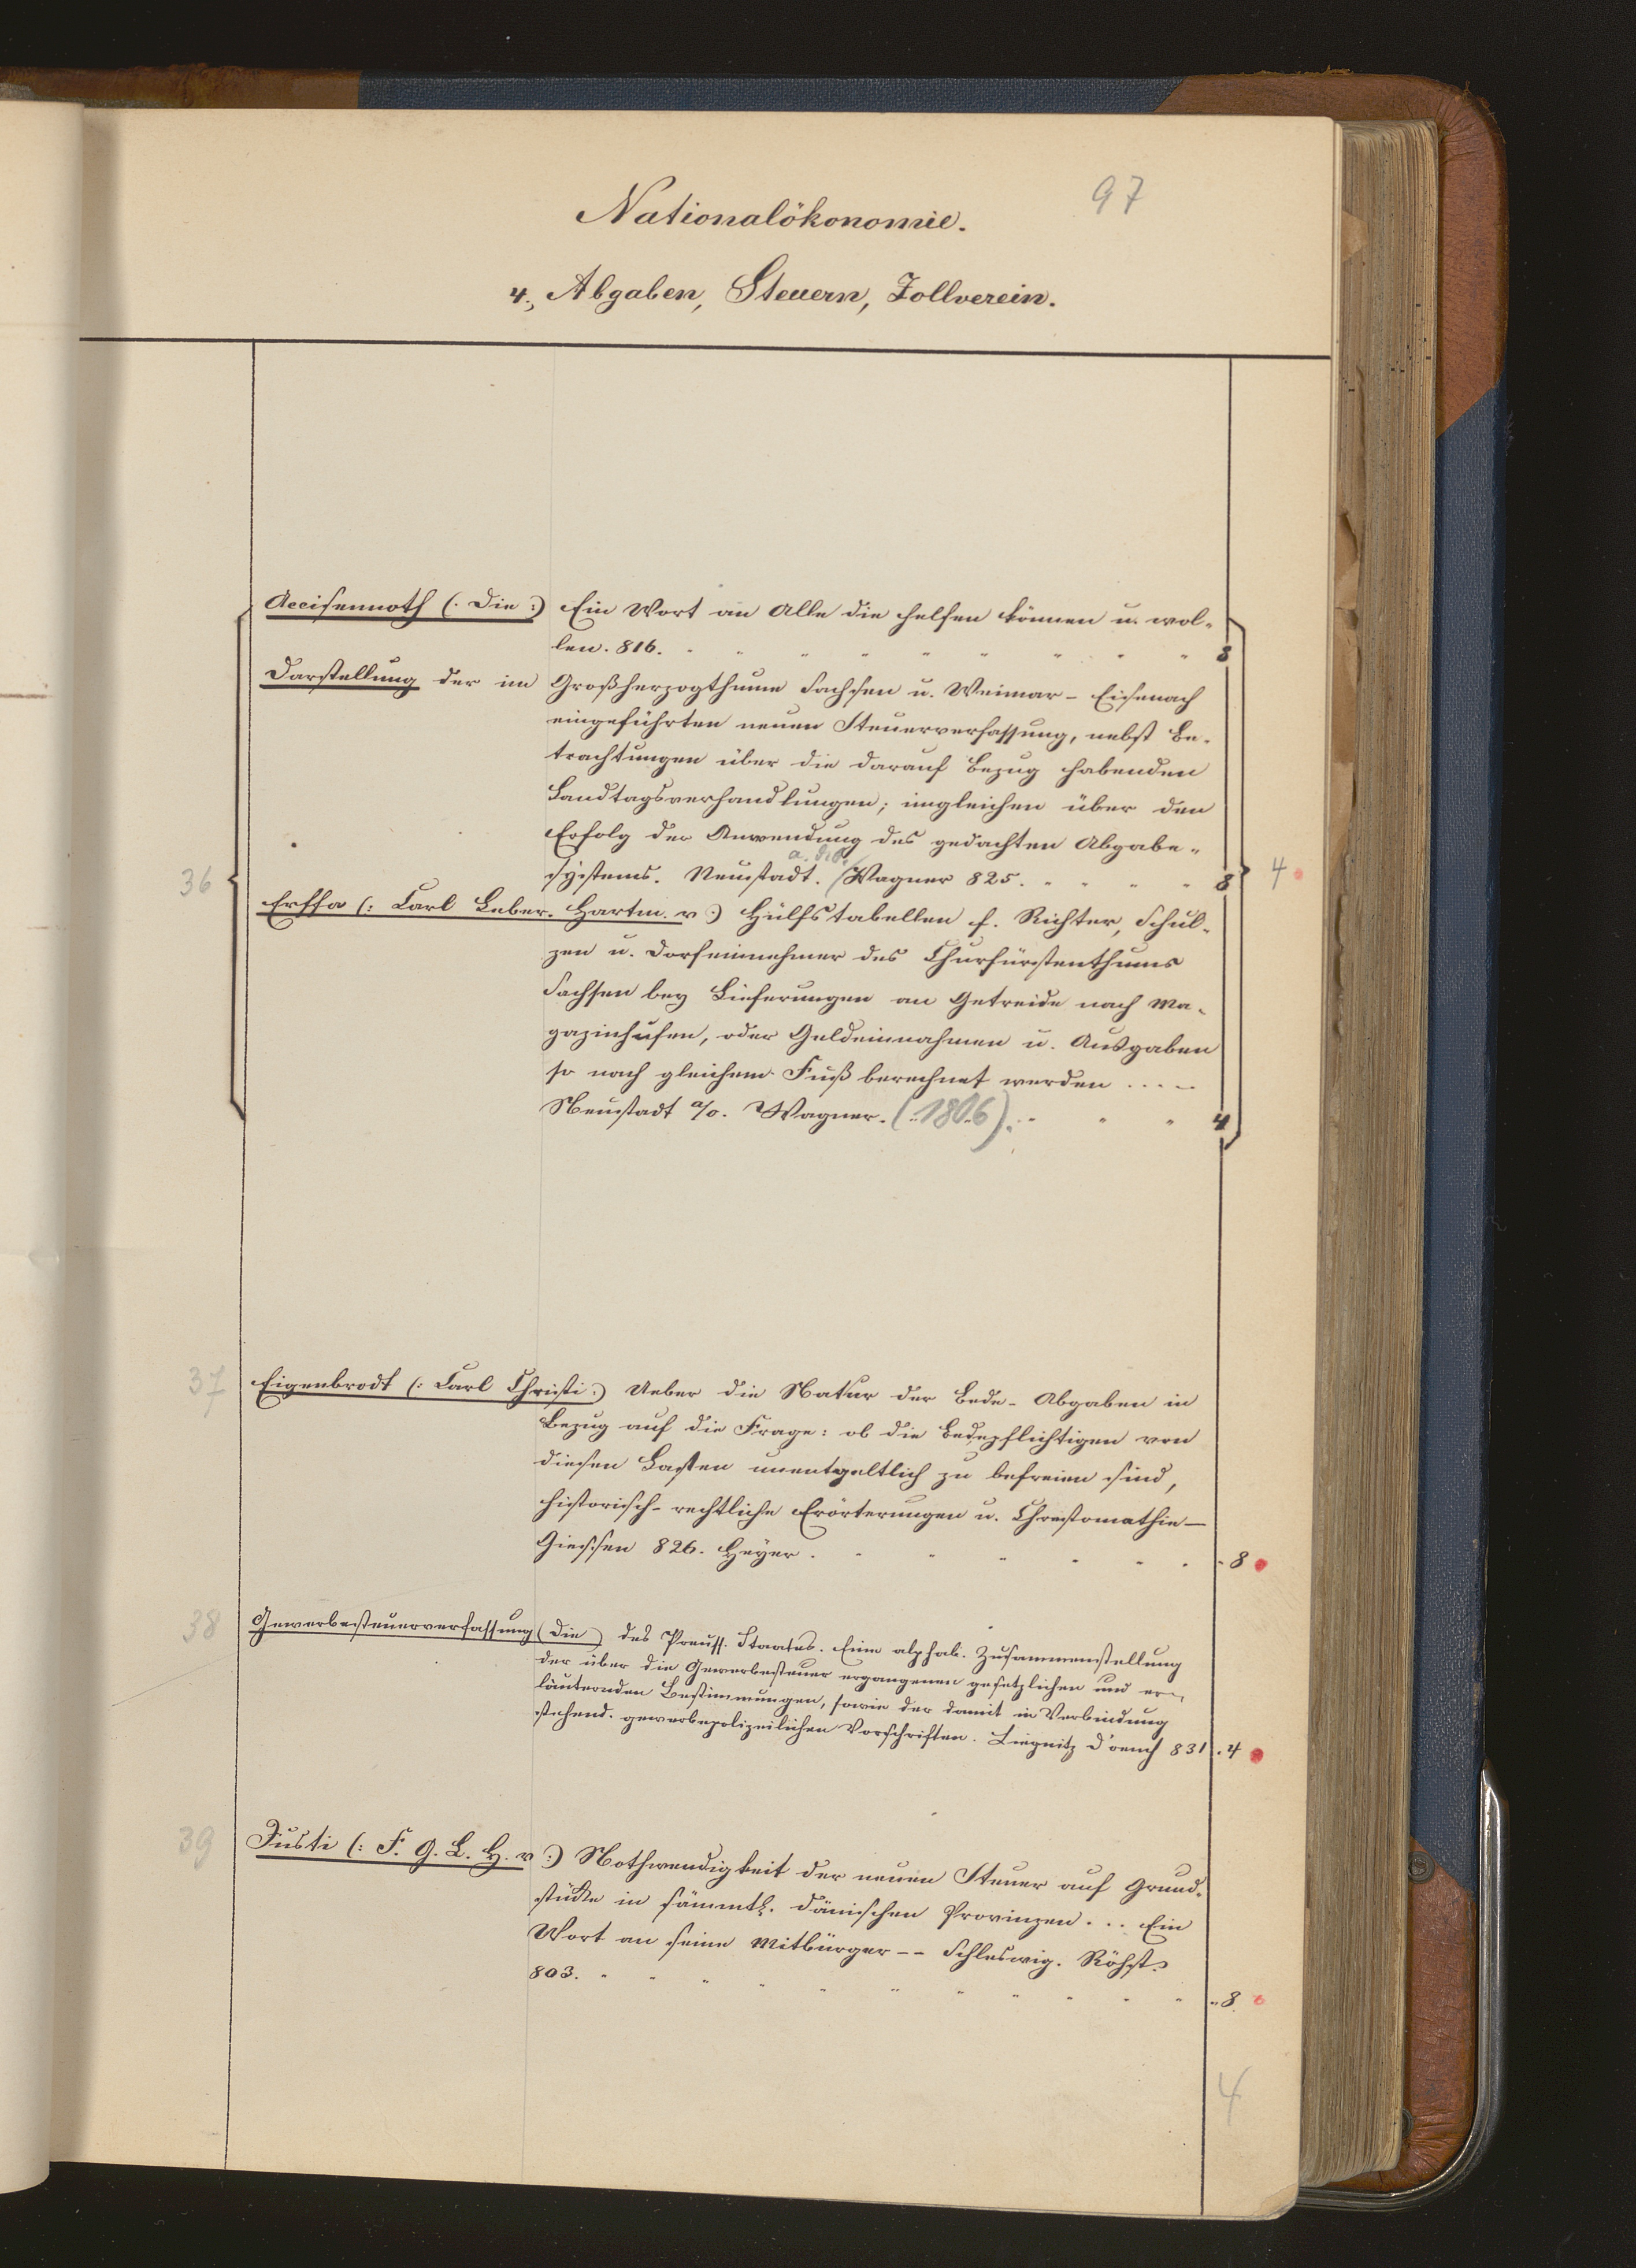 97
Nationalökonomie.
4., Abgaben, Steuern, Zollverein.
Accisennoth (: Die :) Ein Wort an Alle die helfen können u. wol-
len. 816. 8
Darstellung der im Großherzogthume Sachsen u. Weimar-Eisenach
eingeführten neuen Steuerverfassung, nebst Be-
trachtungen über die darauf Bezug habenden
Landtagsverhandlungen; imgleichen über den
Erfolg der Anwendung des gedachten Abgabe-
a. d. O.
36 systems. Neustadt. Wagner 825. 8 4
Erffa (: Carl Leber. Hartm. v :) Hülfstabellen f. Richter, Schul-
zen u. Dorfeinnehmer des Churfürstenthums
Sachsen bey Lieferungen an Getreide nach Ma-
gazinhufen, oder Geldeinnahmen u. Ausgaben
so nach gleichem Fuß berechnet werden ....
Neustadt a/o. Wagner. (1806). 4
37 Eigenbrodt (: Carl Christi :) Ueber die Natur der Bede-Abgaben in
Bezug auf die Frage: ob die Bedepflichtigen von
diesen Lasten unentgeltlich zu befreien sind,
historisch-rechtliche Erörterungen u. Chrestomathie—
Giessen 826. Heyer. 8
38 Gewerbesteuerverfassung (Die) des Preuss. Staates. Eine alphab. Zusammenstellung
der über die Gewerbesteuer ergangenen gesetzlichen und er-
läuternden Bestimmungen, sowie der damit in Verbindung
stehend. gewerbepolizeilichen Vorschriften. Liegnitz D'oench 831. 4
39 Justi (: F. G. L. H. v :) Nothwendigkeit der neuen Steuer auf Grund-
stücke in sämmtl. dänischen Provinzen... Ein
Wort an seine Mitbürger -- Schleswig. Röhß.
803. 8
4